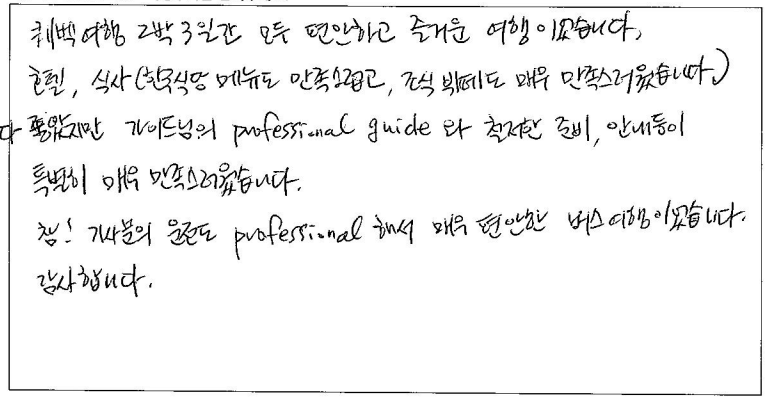 퀘벡여행 2박 3일간 모두 편안하고 즐거운 여행이었습니다,
호텔, 식사(한국식당 메뉴도 만족스럽고, 조식 뷔페도 매우 만족스러웠습니다.)
다 좋았지만 가이드님의 professional guide 와 철저한 준비, 안내등이
특별히 매우 만족스러웠습니다.
참! 기사분의 운전도 professional 해서 매우 편안한 버스여행이었습니다.
감사합니다.